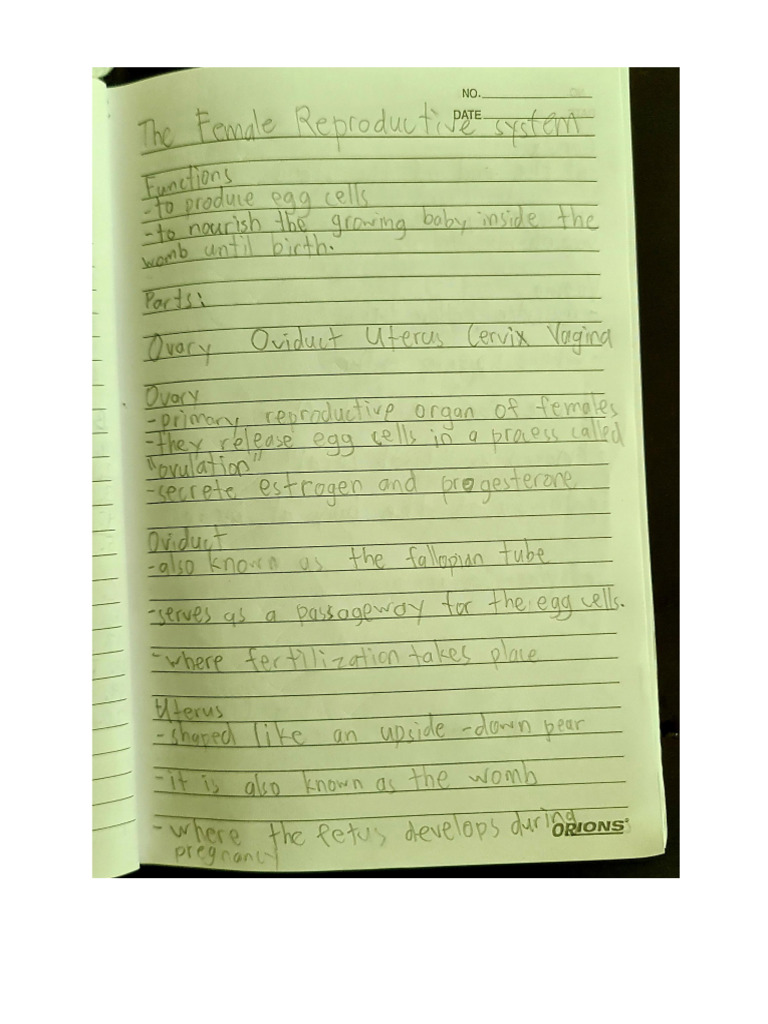 NO.
DATE
The Female Reproductive system
Functions
-to produce egg cells
-to nourish the growing baby inside the
womb until birth.
Parts:
Ovary Oviduct Uterus Cervix Vagina
Ovary
-primary reproductive organ of females
-they release egg cells in a process called
"ovulation"
-secrete estrogen and progesterone
Oviduct
-also known as the fallopian tube
-serves as a passageway for the egg cells.
-where fertilization takes place
Uterus
-shaped like an upside-down pear
-it is also known as the womb
-where the fetus develops during
pregnancy
ORIONS